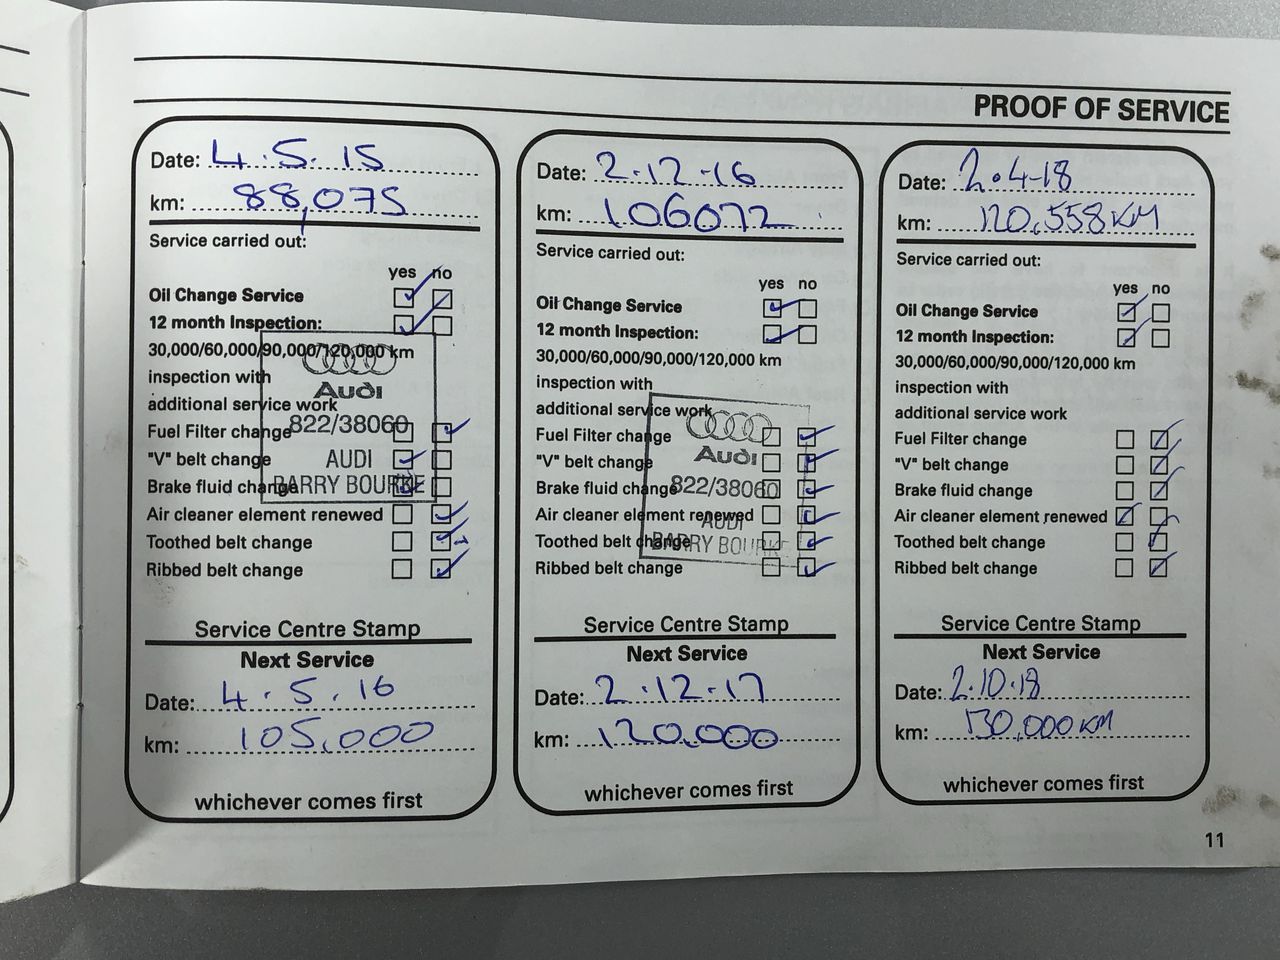 PROOF OF SERVICE
Date: 4.5.15
km: 88,075
Service carried out:
yes no
Oil Change Service
12 month Inspection:
30,000/60,000/90,000/120,000 km
inspection with
additional service work
Fuel Filter change
"V" belt change
Brake fluid change
Air cleaner element renewed
Toothed belt change
Ribbed belt change
Audi
822/38060
AUDI
BARRY BOURKE
Service Centre Stamp
Next Service
Date: 4.5.16
km: 105,000
whichever comes first
Date: 2.12.16
km: 106072
Service carried out:
yes no
Oil Change Service
12 month Inspection:
30,000/60,000/90,000/120,000 km
inspection with
additional service work
Fuel Filter change
"V" belt change
Brake fluid change
Air cleaner element renewed
Toothed belt change
Ribbed belt change
Audi
822/38060
AUDI
BARRY BOURKE
Service Centre Stamp
Next Service
Date: 2.12.17
km: 120,000
whichever comes first
Date: 2.4.18
km: 120,558 KM
Service carried out:
yes no
Oil Change Service
12 month Inspection:
30,000/60,000/90,000/120,000 km
inspection with
additional service work
Fuel Filter change
"V" belt change
Brake fluid change
Air cleaner element renewed
Toothed belt change
Ribbed belt change
Service Centre Stamp
Next Service
Date: 2.10.18
km: 130,000 KM
whichever comes first
11